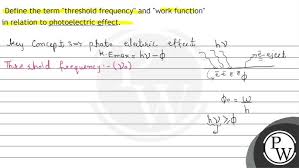 Define the term "threshold frequency" and "work function"
in relation to photoelectric effect.
Key Concepts for photo electric effect
hν
K.Emax = hν - ϕ
Threshold frequency:- (ν₀)
e e e e
ϕ₀ = w/h
hν ≥ ϕ
P
W